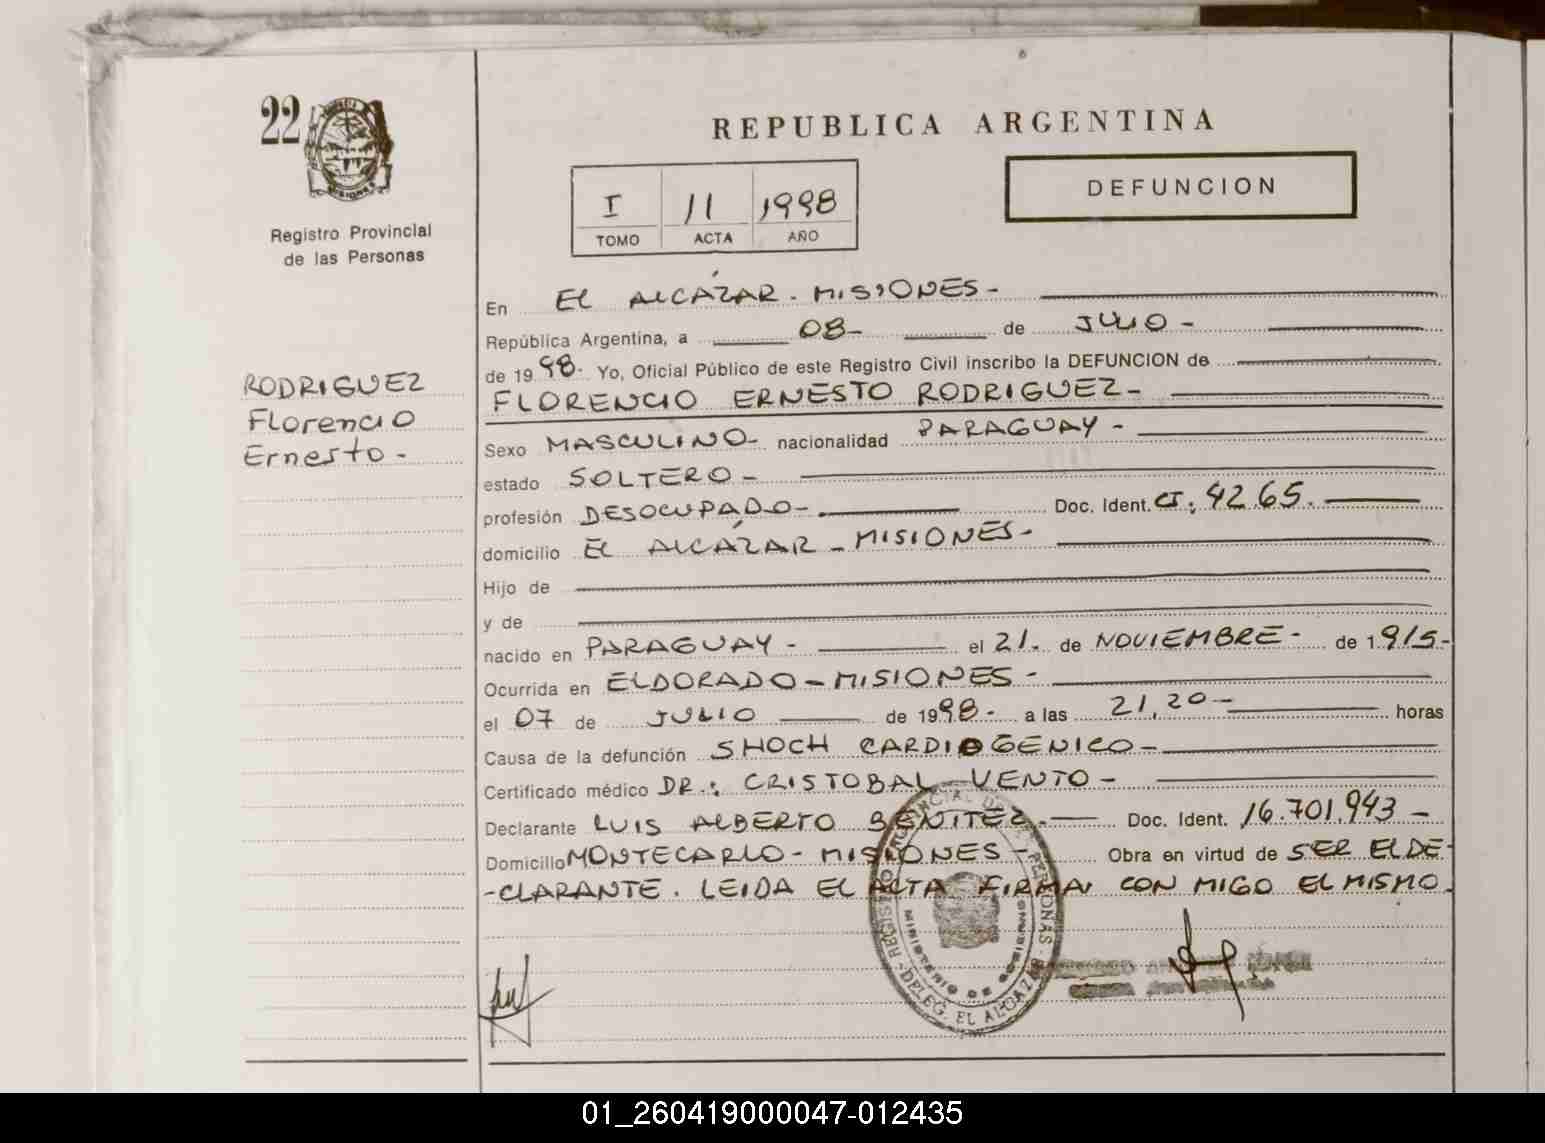 22
Registro Provincial
de las Personas
RODRIGUEZ
Florencio
Ernesto -
REPUBLICA ARGENTINA
I 11 1998
TOMO ACTA AÑO
DEFUNCION
En EL ALCÁZAR - MISIONES -
República Argentina, a 08- de JULIO -
de 19 98- Yo, Oficial Público de este Registro Civil inscribo la DEFUNCION de
FLORENCIO ERNESTO RODRIGUEZ-
Sexo MASCULINO- nacionalidad PARAGUAY -
estado SOLTERO -
profesión DESOCUPADO- Doc. Ident. CI: 4265.
domicilio EL ALCÁZAR - MISIONES-
Hijo de
y de
nacido en PARAGUAY - el 21. de NOVIEMBRE - de 1915-
Ocurrida en ELDORADO - MISIONES -
el 07 de JULIO de 1998- a las 21,20- horas
Causa de la defunción SHOCH CARDIOGENICO-
Certificado médico DR.: CRISTOBAL VENTO -
Declarante LUIS ALBERTO BENITEZ- Doc. Ident. 16.701.943 -
Domicilio MONTECARLO - MISIONES, Obra en virtud de SER EL DE-
-CLARANTE. LEIDA EL ACTA FIRMA, CON MIGO EL MISMO.
REGISTRO PROVINCIAL DE LAS PERSONAS
MINISTERIO DE GOBIERNO
DELEG. EL ALCAZAR
01_260419000047-012435